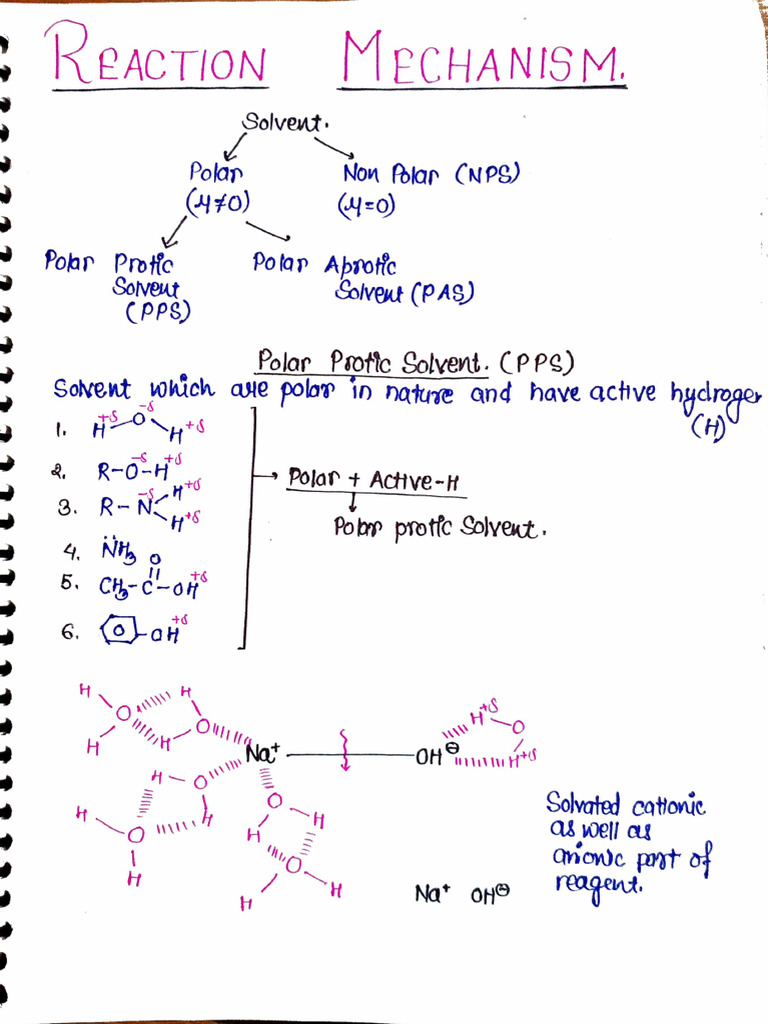 REACTION MECHANISM.
Solvent.
Polar Non Polar (NPS)
(μ≠0) (μ=0)
Polar Protic Solvent (PPS)
Polar Aprotic Solvent (PAS)
Polar Protic Solvent. (PPS)
Solvent which are polar in nature and have active hydrogen
(H)
1. H+δ O-δ H+δ
2. R-O-δ-H+δ
3. R-N-δ H+δ H+δ
4. N̈H3
5. CH3-C(=O)-OH+δ
6. -OH+δ
Polar + Active-H
Polar protic Solvent.
H H O O H H
Na+ OH⊖
H+δ O H+δ
H O H H O H
O H H O H H
Solvated cationic
as well as
anionic part of
reagent.
Na+ OH⊖